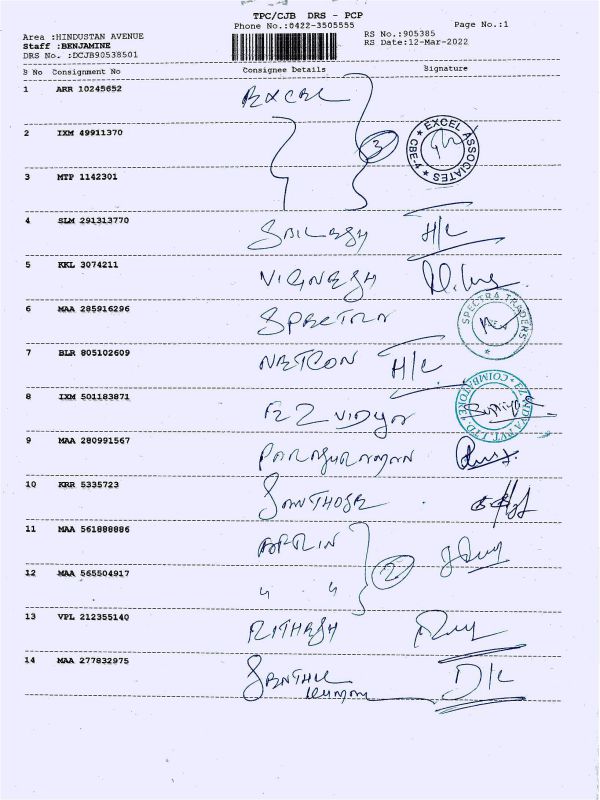 TPC/CJB DRS - PCP
Phone No.:0422-3505555
Page No.:1
Area :HINDUSTAN AVENUE
Staff :BENJAMINE
DRS No. :DCJB90538501
RS No.:905385
RS Date:12-Mar-2022
B No Consignment No Consignee Details Signature
1 ARR 10245652 EXCEL
2 IXM 49911370 3 EXCEL ASSOCIATES CBE-4
3 MTP 1142301
4 SLM 291313770 SAILESH H/L
5 KKL 3074211 VIGNESH
6 MAA 285916296 SPECTRA SPECTRA TRADERS CBE
7 BLR 805102609 NETCON H/L
8 IXM 501183871 EZ VIDYA EZ VIDYA PVT. LTD. COIMBATORE
9 MAA 280991567 PARASURAMAN
10 KRR 5335723 SANTHOSH
11 MAA 561888886
12 MAA 565504917 " " 2
13 VPL 212355140 RITHESH
14 MAA 277832975 SENTHIL D/L
kumar